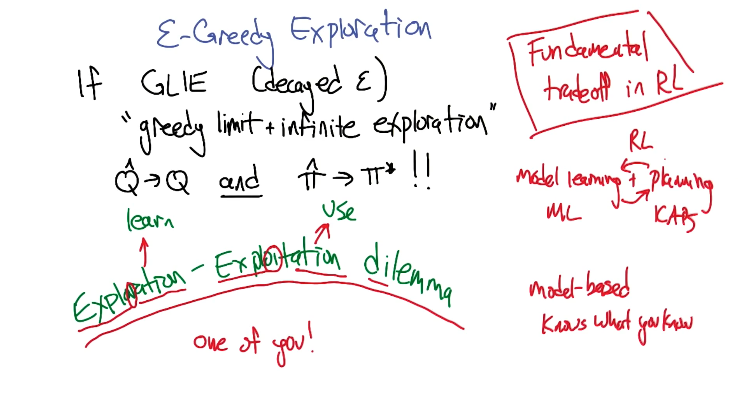 ε-Greedy Exploration
If GLIE (decayed ε)
"greedy limit + infinite exploration"
Q̂→Q and π̂→π* !!
learn
use
Exploration - Exploitation dilemma
one of you!
Fundamental
tradeoff in RL
RL
model learning + planning
ML
model-based
Knows what you know